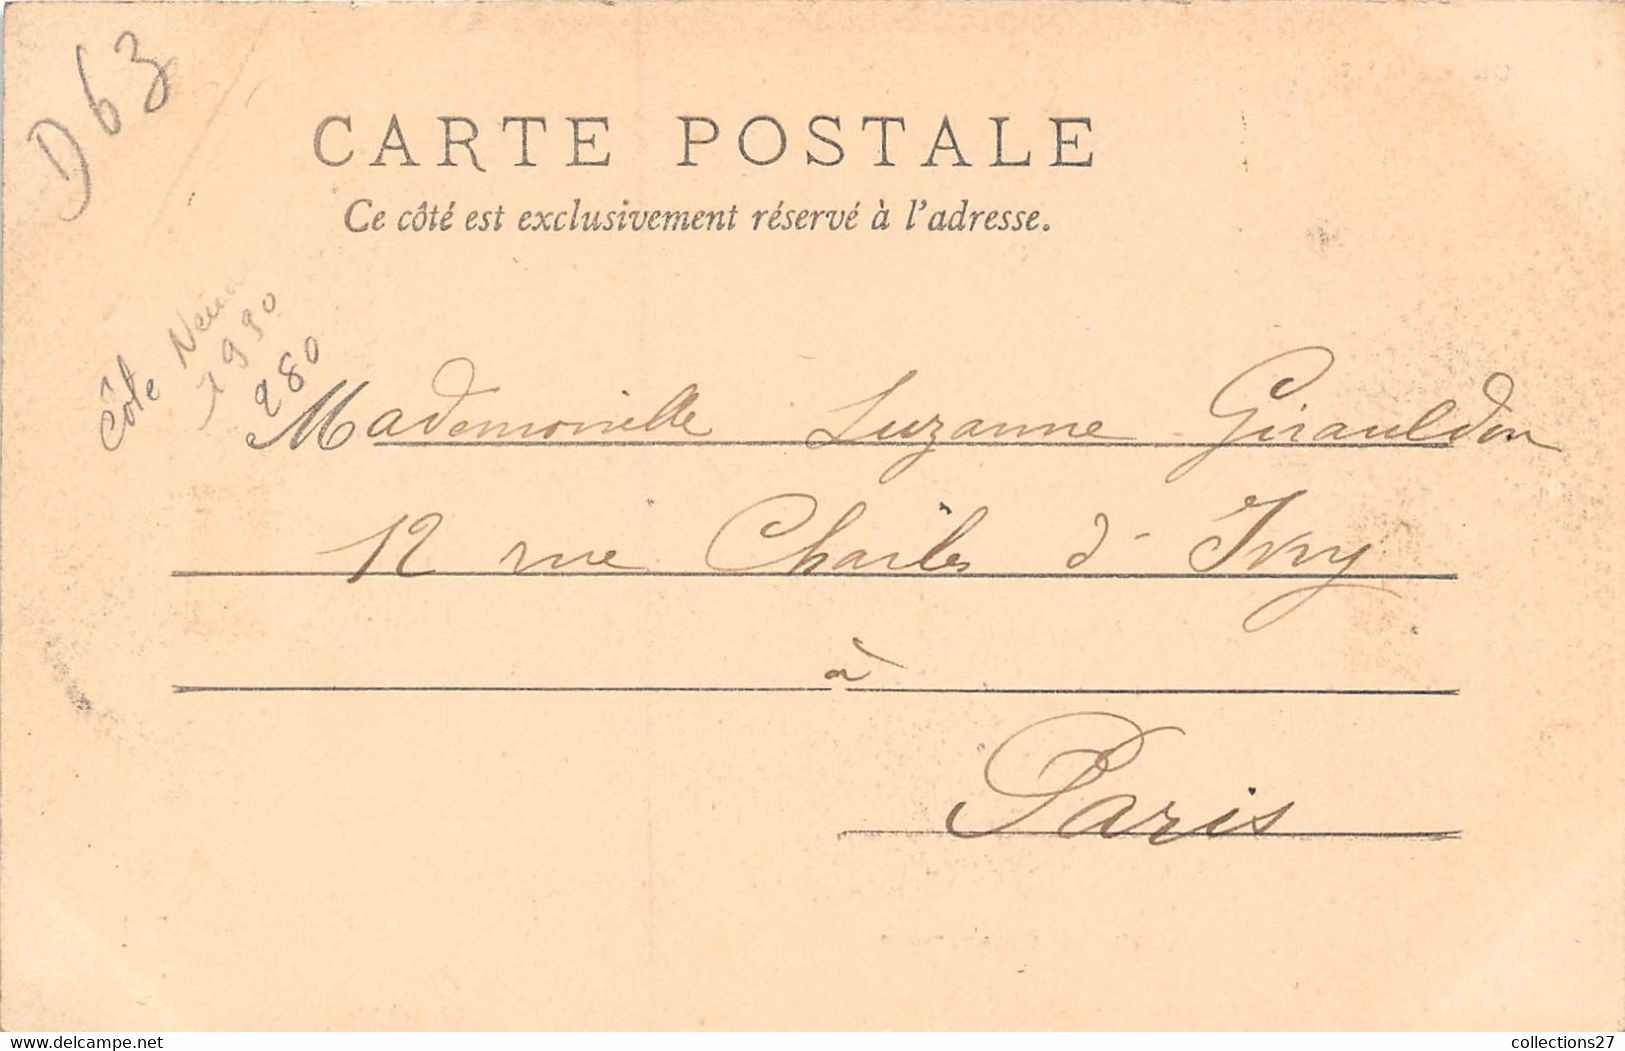 D63
CARTE POSTALE
Ce côté est exclusivement réservé à l'adresse.
côte
1990
280
Mademoiselle Suzanne Girauldon
12 rue Charles d'Ivry
à
Paris
www.delcampe.net
collections27